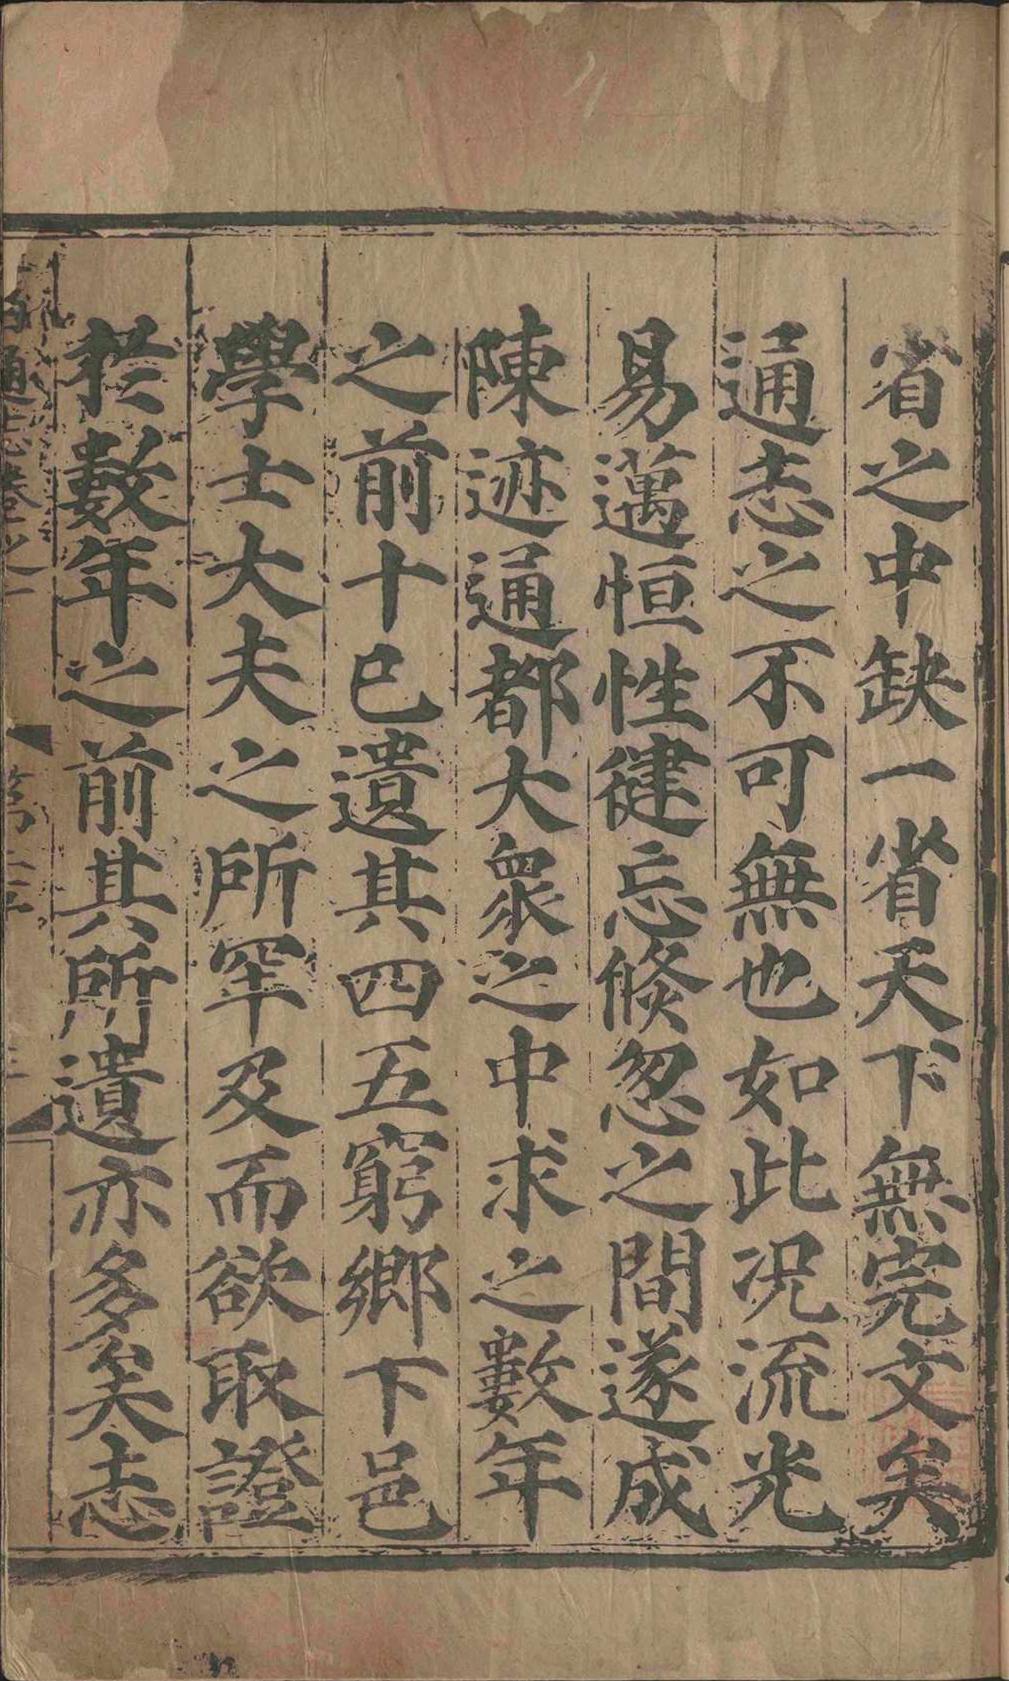 省之中缺一省天下無完文矣
通志之不可無也如此况流光
易邁恒性健忘倐忽之間遂成
陳迹通都大衆之中求之數年
之前十已遺其四五窮鄉下邑
學士大夫之所罕及而欲取證
於數年之前其所遺亦多矣志
通志卷之一